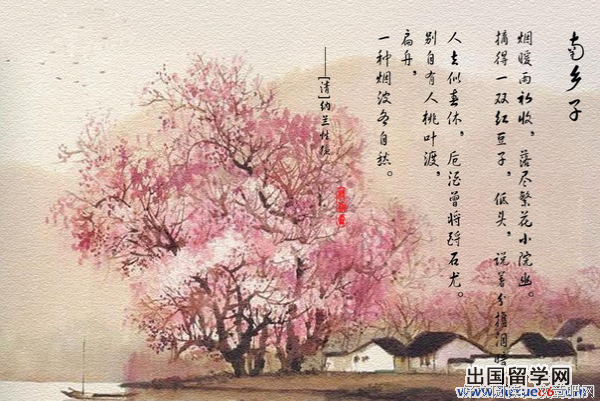 南乡子
烟暖雨初收，落尽繁花小院幽。
摘得一双红豆子，低头，说着分携泪暗
人去似春休，卮酒曾将酹石尤。
别自有人桃叶渡，
扁舟，
一种烟波各自愁。
——[清]纳兰性德
出国留学网